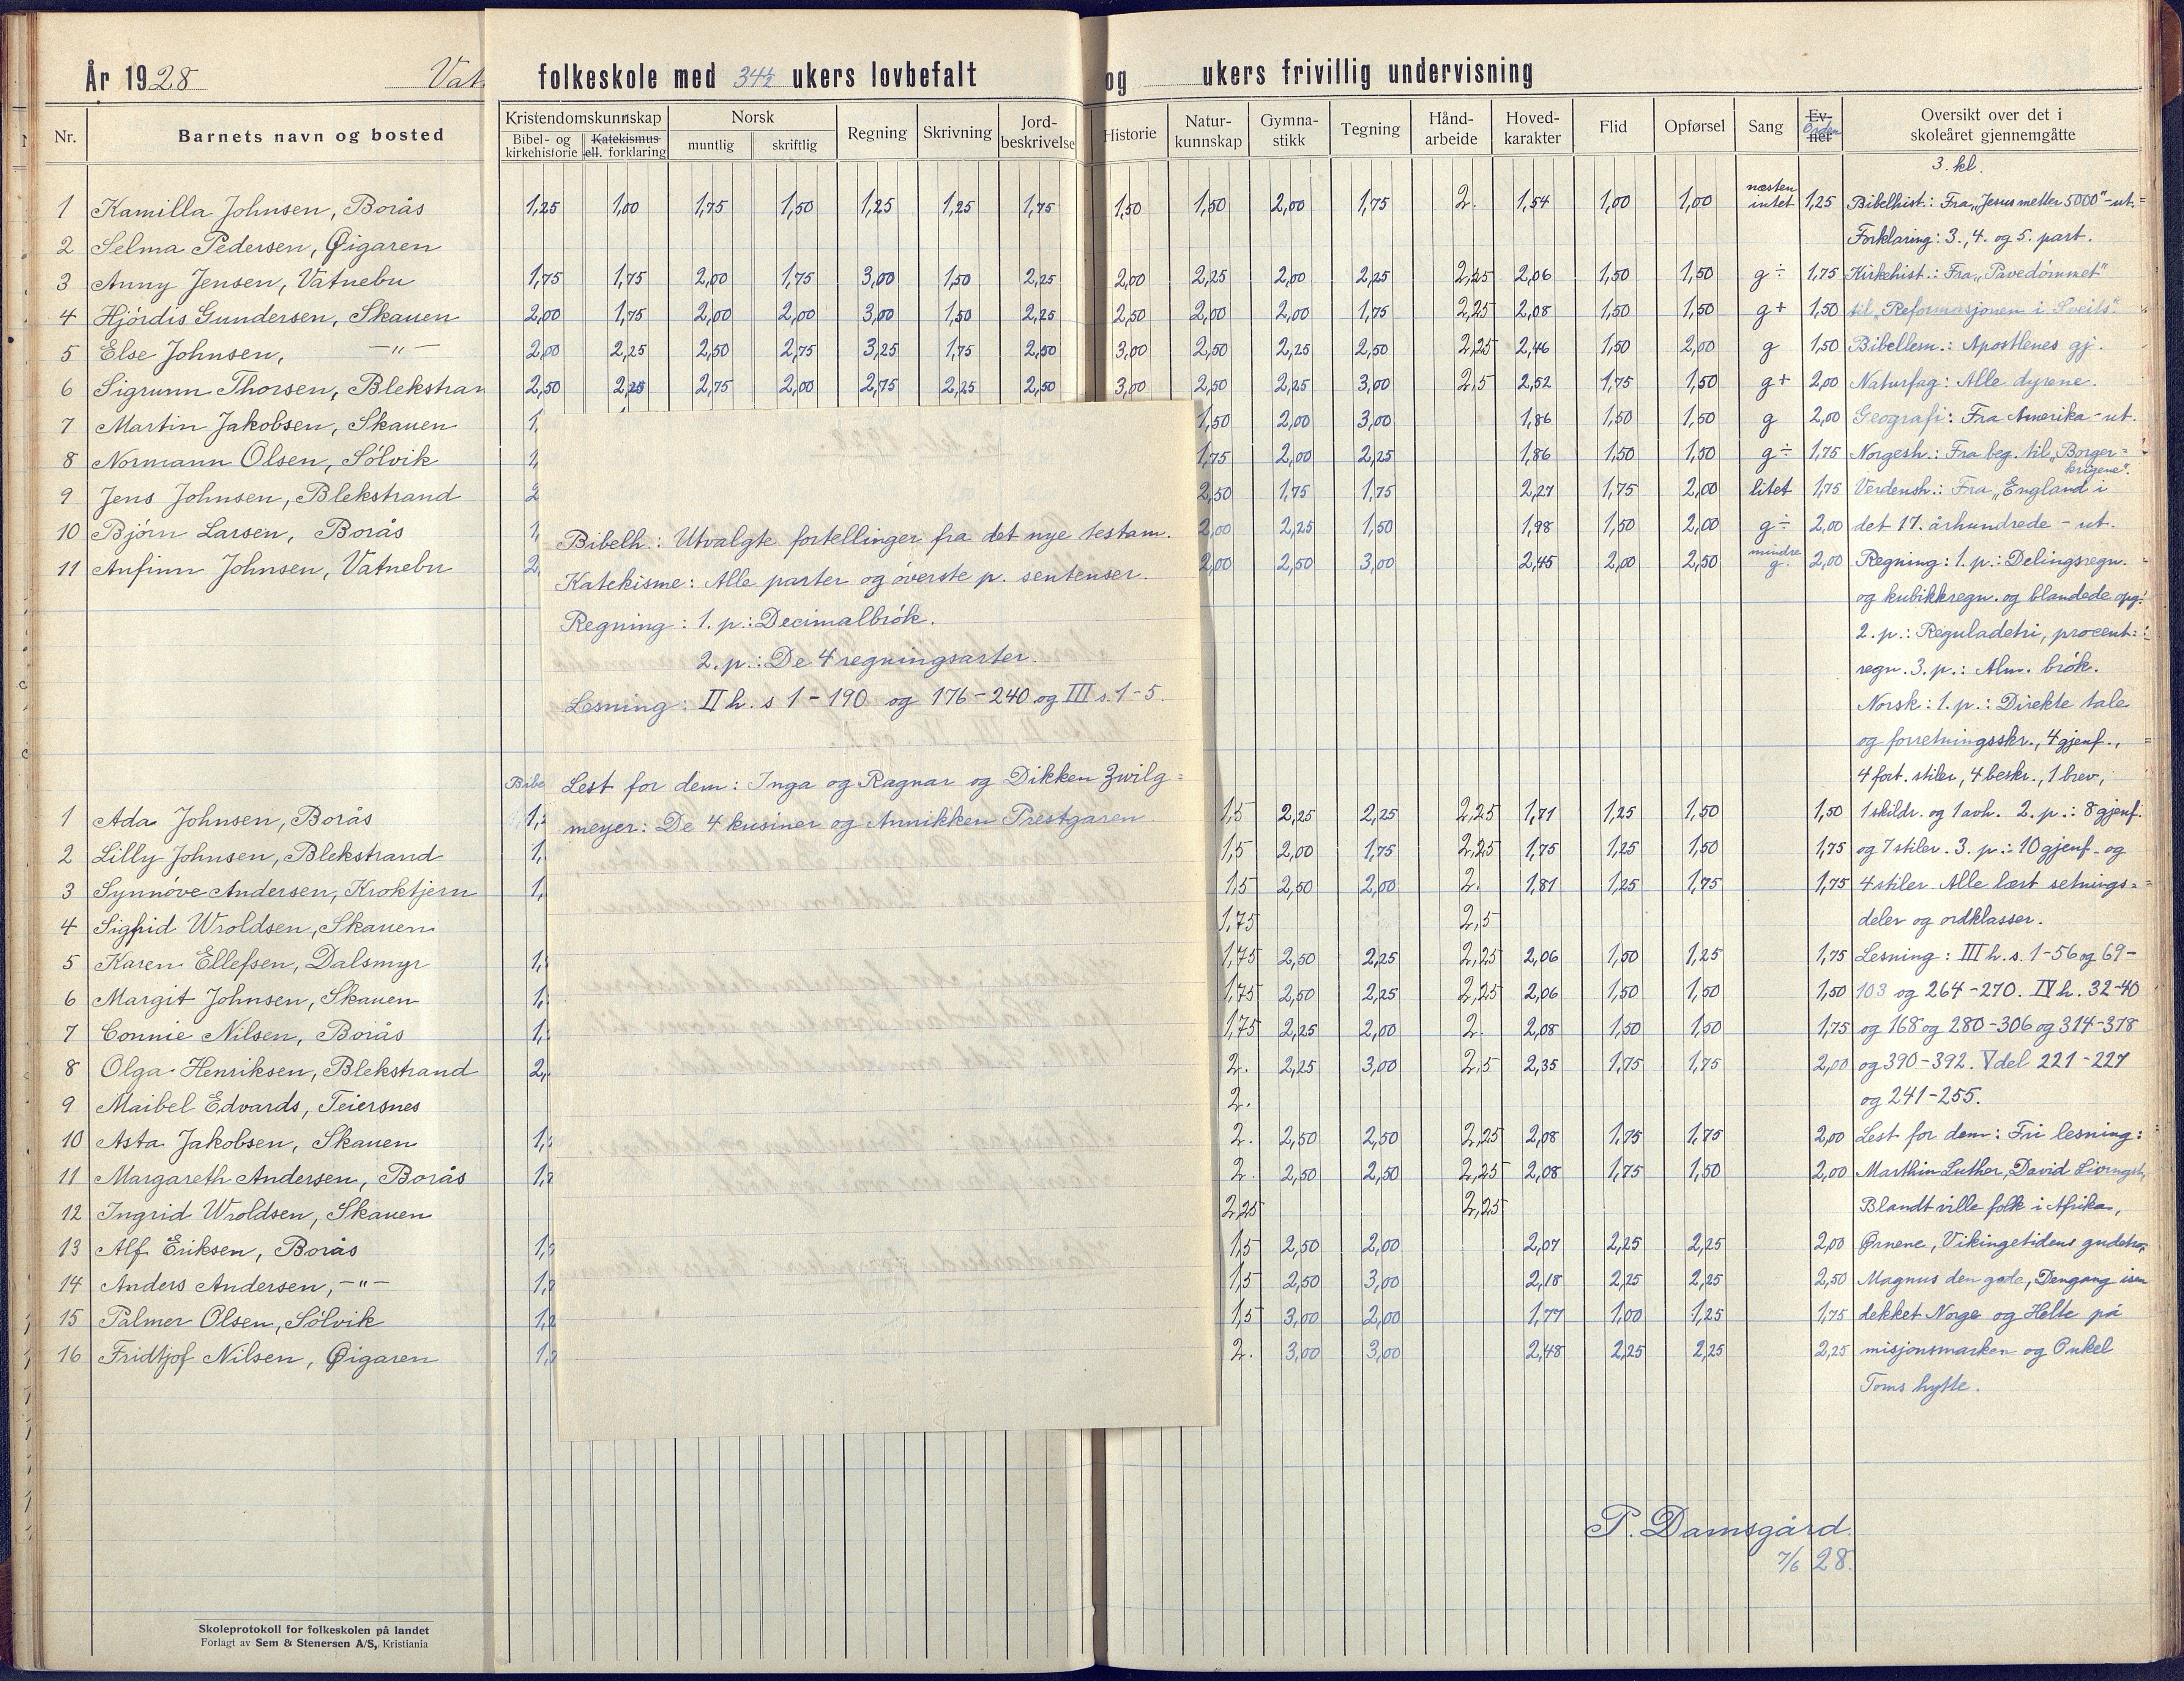 År 1928 Vat folkeskole med 34½ ukers lovbefalt og ukers frivillig undervisning
Nr. Barnets navn og bosted Kristendomskunnskap Norsk Regning Skrivning Jord-beskrivelse Historie Natur-kunnskap Gymna-stikk Tegning Hånd-arbeide Hoved-karakter Flid Opførsel Sang Ev-ner Orden Oversikt over det i skoleåret gjennemgåtte
Bibel- og kirkehistorie Katekismus ell. forklaring muntlig skriftlig
3. kl.
1 Kamilla Johnsen, Borås 1,25 1,00 1,75 1,50 1,25 1,25 1,75 1,50 1,50 2,00 1,75 2. 1,54 1,00 1,00 næsten intet 1,25 Bibelhist.: Fra „Jesus metter 5000" - ut.
2 Selma Pedersen, Øigaren Forklaring: 3., 4. og 5. part.
3 Anny Jensen, Vatnebu 1,75 1,75 2,00 1,75 3,00 1,50 2,25 2,00 2,25 2,00 2,25 2,25 2,06 1,50 1,50 g ÷ 1,75 Kirkehist.: Fra „Pavedömmet"
4 Hjördis Gundersen, Skauen 2,00 1,75 2,00 2,00 3,00 1,50 2,25 2,50 2,00 2,00 1,75 2,25 2,08 1,50 1,50 g + 1,50 til „Reformasjonen i Sveits".
5 Else Johnsen, —"— 2,00 2,25 2,50 2,75 3,25 1,75 2,50 3,00 2,50 2,25 2,50 2,25 2,46 1,50 2,00 g 1,50 Bibellesn.: Apostlenes gj.
6 Sigrunn Thorsen, Blekstran 2,50 2,25 2,75 2,00 2,75 2,25 2,50 3,00 2,50 2,25 3,00 2,5 2,52 1,75 1,50 g + 2,00 Naturfag: Alle dyrene.
7 Martin Jakobsen, Skauen 1, 1,50 2,00 3,00 1,86 1,50 1,50 g 2,00 Geografi: Fra Amerika - ut.
8 Normann Olsen, Sölvik 1, 1,75 2,00 2,25 1,86 1,50 1,50 g ÷ 1,75 Norgesh.: Fra beg. til „Borger=
krigene".
9 Jens Johnsen, Blekstrand 2 2,50 1,75 1,75 2,27 1,75 2,00 litet 1,75 Verdensh.: Fra „England i
10 Björn Larsen, Borås 1, 2,00 2,25 1,50 1,98 1,50 2,00 g ÷ 2,00 det 17. århundrede - ut.
11 Anfinn Johnsen, Vatnebu 2, 2,00 2,50 3,00 2,45 2,00 2,50 mindre g. 2,00 Regning: 1. p.: Delingsregn.
og kubikkregn. og blandede opg.
2. p.: Reguladetri, procent=
regn. 3. p.: Alm. brök.
Norsk: 1. p.: Direkte tale
og forretningsskr., 4 gjenf.,
4 fort. stiler, 4 beskr., 1 brev,
Bibelh.: Utvalgte fortellinger fra det nye testam.
Katekisme: Alle parter og överste p. sentenser.
Regning: 1. p.: Decimalbrök.
2. p.: De 4 regningsarter.
Lesning: II h. s 1 - 190 og 176 - 240 og III s. 1 - 5.
Bibe
Lest for dem: Inga og Ragnar og Dikken Zwilg=
meyer: De 4 kusiner og Annikken Prestgaren.
1 Ada Johnsen, Borås 1, 1,5 2,25 2,25 2,25 1,71 1,25 1,50 1,50 1 skildr. og 1 avh. 2. p.: 8 gjenf.
2 Lilly Johnsen, Blekstrand 1, 1,5 2,00 1,75 2,25 1,75 1,25 1,50 1,75 og 7 stiler. 3. p.: 10 gjenf. og
3 Synnöve Andersen, Kroktjern 1, 1,5 2,50 2,00 2. 1,81 1,25 1,75 1,75 4 stiler. Alle lært setnings=
4 Sigrid Wroldsen, Skauen 1,75 2,5 deler og ordklasser.
5 Karen Ellefsen, Dalsmyr 1, 1,75 2,50 2,25 2,25 2,06 1,50 1,25 1,75 Lesning: III h. s. 1-56 og 69-
6 Margit Johnsen, Skauen 1, 1,75 2,50 2,25 2,25 2,06 1,50 1,50 1,50 103 og 264-270. IV h. 32-40
7 Connie Nilsen, Borås 1, 1,75 2,25 2,00 2. 2,08 1,50 1,50 1,75 og 168 og 280-306 og 314-378
8 Olga Henriksen, Blekstrand 2, 2. 2,25 3,00 2,5 2,35 1,75 1,75 2,00 og 390-392. V del 221-227
9 Maibel Edvards, Teiersnes 2. og 241-255.
10 Asta Jakobsen, Skauen 1, 2. 2,50 2,50 2,25 2,08 1,75 1,75 2,00 Lest for dem: Fri lesning:
11 Margareth Andersen, Borås 1, 2. 2,50 2,50 2,25 2,08 1,75 1,50 2,00 Marthin Luther, David Livingst,
12 Ingrid Wroldsen, Skauen 2,25 2,25 Blandt ville folk i Afrika,
13 Alf Eriksen, Borås 1, 1,5 2,50 2,00 2,07 2,25 2,25 2,00 Ørnene, Vikingetidens gudetro,
14 Anders Andersen, —"— 1, 1,5 2,50 3,00 2,18 2,25 2,25 2,50 Magnus den gode, Dengang isen
15 Palmer Olsen, Sölvik 1, 1,5 3,00 2,00 1,77 1,00 1,25 1,75 dekket Norge og Helte på
16 Fridtjof Nilsen, Øigaren 1, 2. 3,00 3,00 2,48 2,25 2,25 2,25 misjonsmarken og Onkel
Toms hytte.
P. Damsgård.
7/6 28.
Skoleprotokoll for folkeskolen på landet
Forlagt av Sem & Stenersen A/S, Kristiania